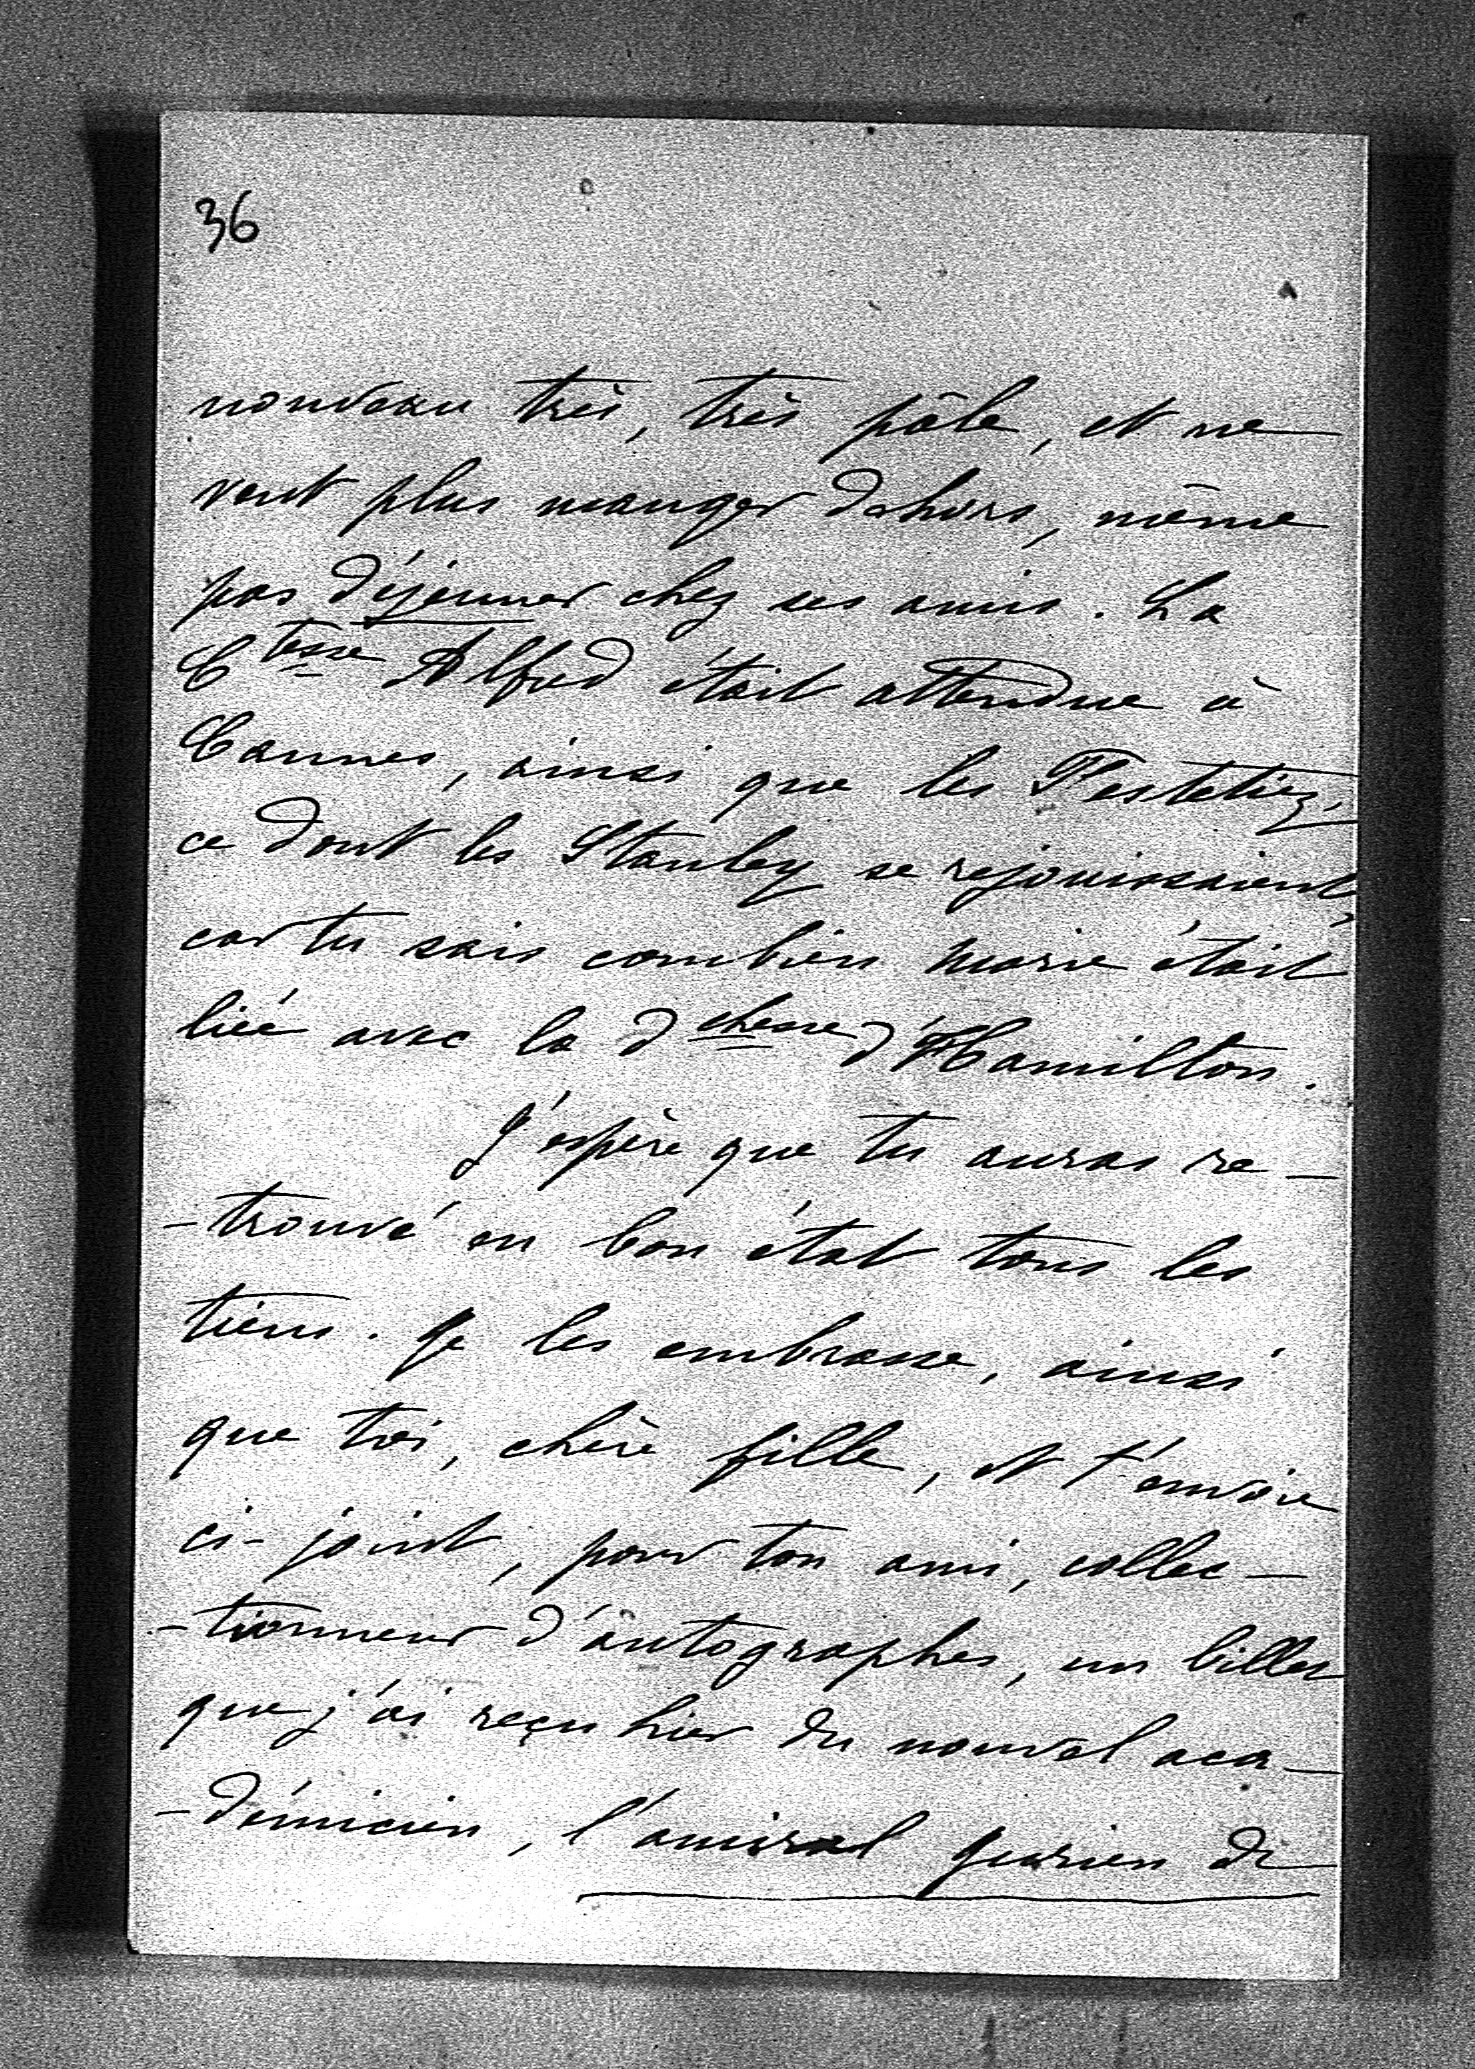 36
nouveau très, très pâle, et ne
veut plus manger dehors, même
pas déjeuner chez ses amis. La
Ctesse Alfred était attendue à
Cannes, ainsi que les Festetiez,
ce dont les Stanley se rejouissaient,
car tu sais combien Marie était
liée avec la dchesse d'Hamilton.
J'espère que tu auras re-
-trouvé en bon état tous les
tiens. Je les embrasse, ainsi
que toi, chère fille, et t'envoie
ci-joint, pour ton ami, collec-
-tionneur d'autographes, un billet
que j'ai reçu hier du nouvel aca-
-démicien, l'amiral Jurien de